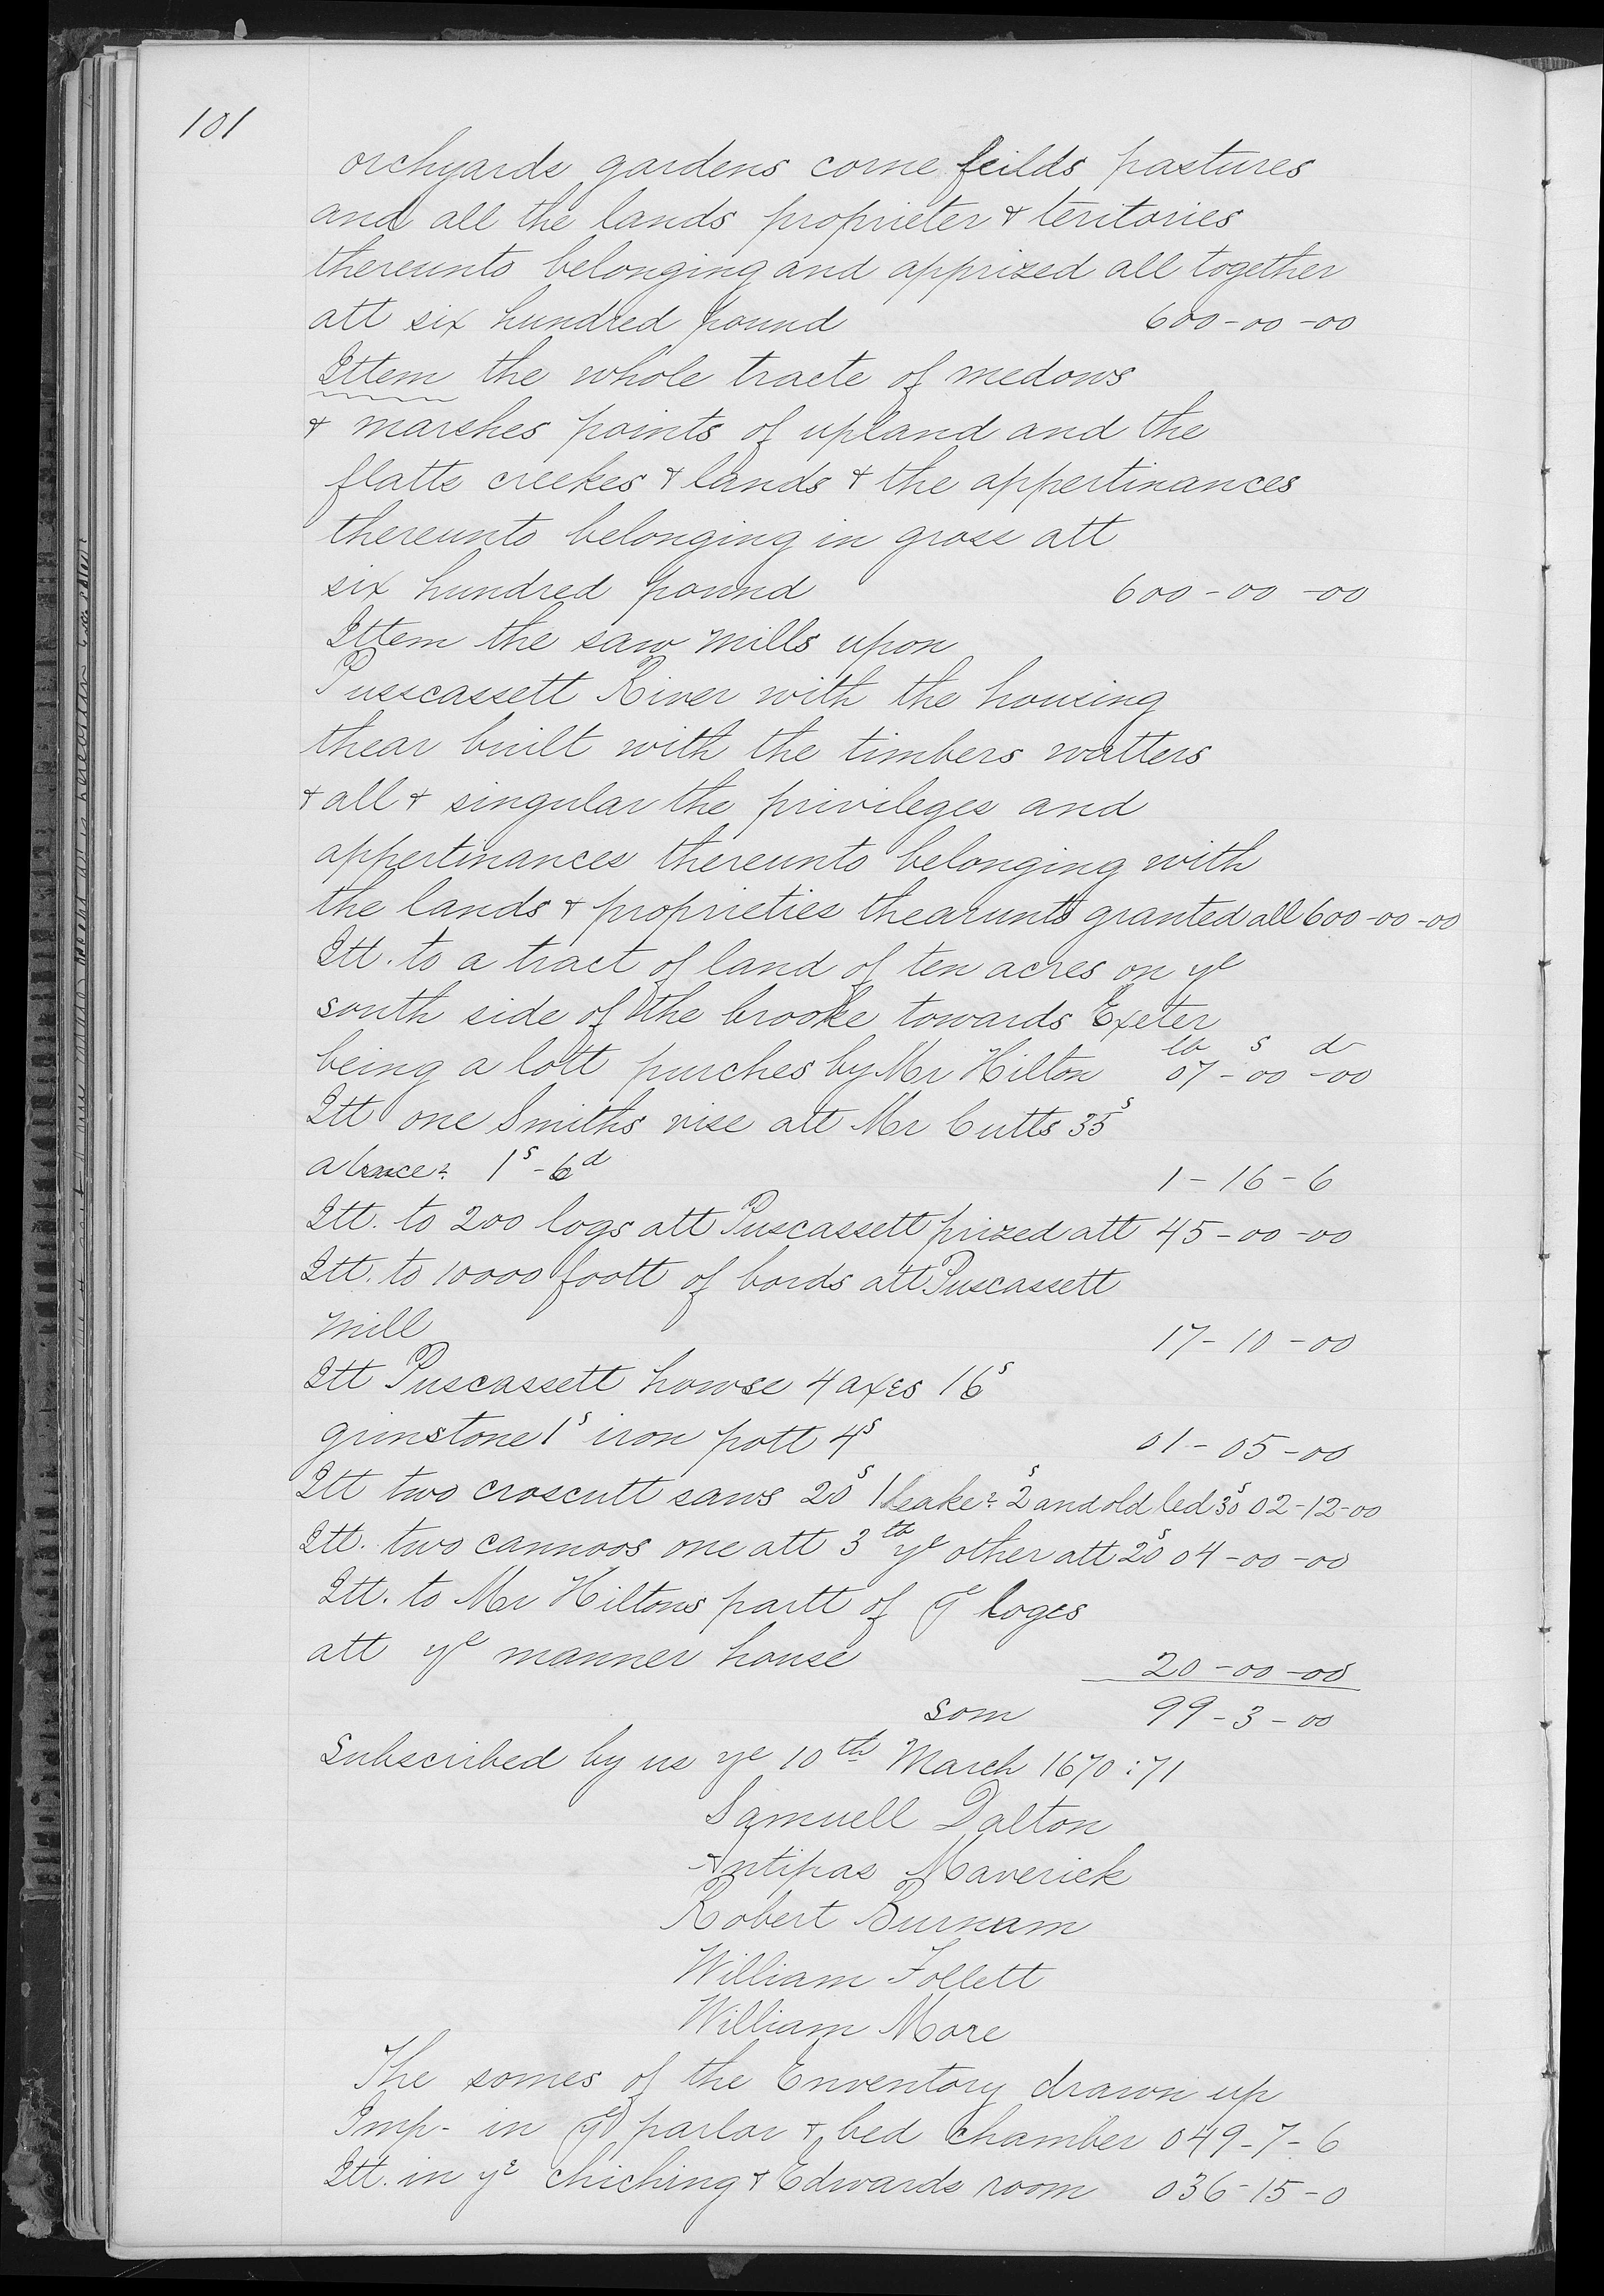 101
orchyards gardens corne feilds pastures
and all the lands proprieter & teritories
thereunto belonging and apprized all together
att six hundred pound 600-00-00
Ittem the whole tracte of medows
& marshes points of upland and the
flatts creekes & lands & the appertinances
thereunto belonging in gross att
six hundred pound 600-00-00
Ittem the saw mills upon
Pusscassett River with the housing
thear built with the timbers watters
& all & singular the privileges and
appertinances thereunto belonging with
the lands & proprieties thearunto granted all 600-00-00
Itt. to a tract of land of ten acres on ye
south side of the brooke towards Exeter
lb s d
being a lott purches by Mr Hilton 07-00-00
Itt one Smiths vise att Mr Cutts 35s
a brace? 1s-6d 1-16-6
Itt. to 200 logs att Puscassett prized att 45-00-00
Itt. to 10000 foott of bords att Puscassett
mill 17-10-00
Itt Puscassett howse 4 axes 16s
grinstone 1s iron pott 4s 01-05-00
Itt two croscutt saws 20s 1 beake? 2s and old bed 30s 02-12-00
Itt. two cannoos one att 3lb ye other att 20s 04-00-00
Itt. to Mr Hiltons partt of ye loges
att ye manner house 20-00-00
som 99-3-00
Subscribed by us ye 10th March 1670:71
Samuell Dalton
Antipas Maverick
Robert Burnam
William Follett
William More
The somes of the Enventory drawn up
Imp- in ye parlor & bed chamber 049-7-6
Itt. in ye chiching & Edwards room 036-15-0